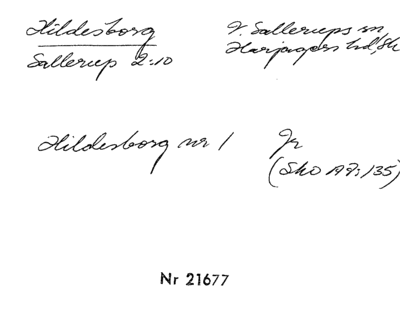 Hildesborg
V. Sallerups sn
Sallerup 2:10
Harjagers hd, Sk
Hildesborg nr 1
Jr
(SkO A9:135)
Nr 21677